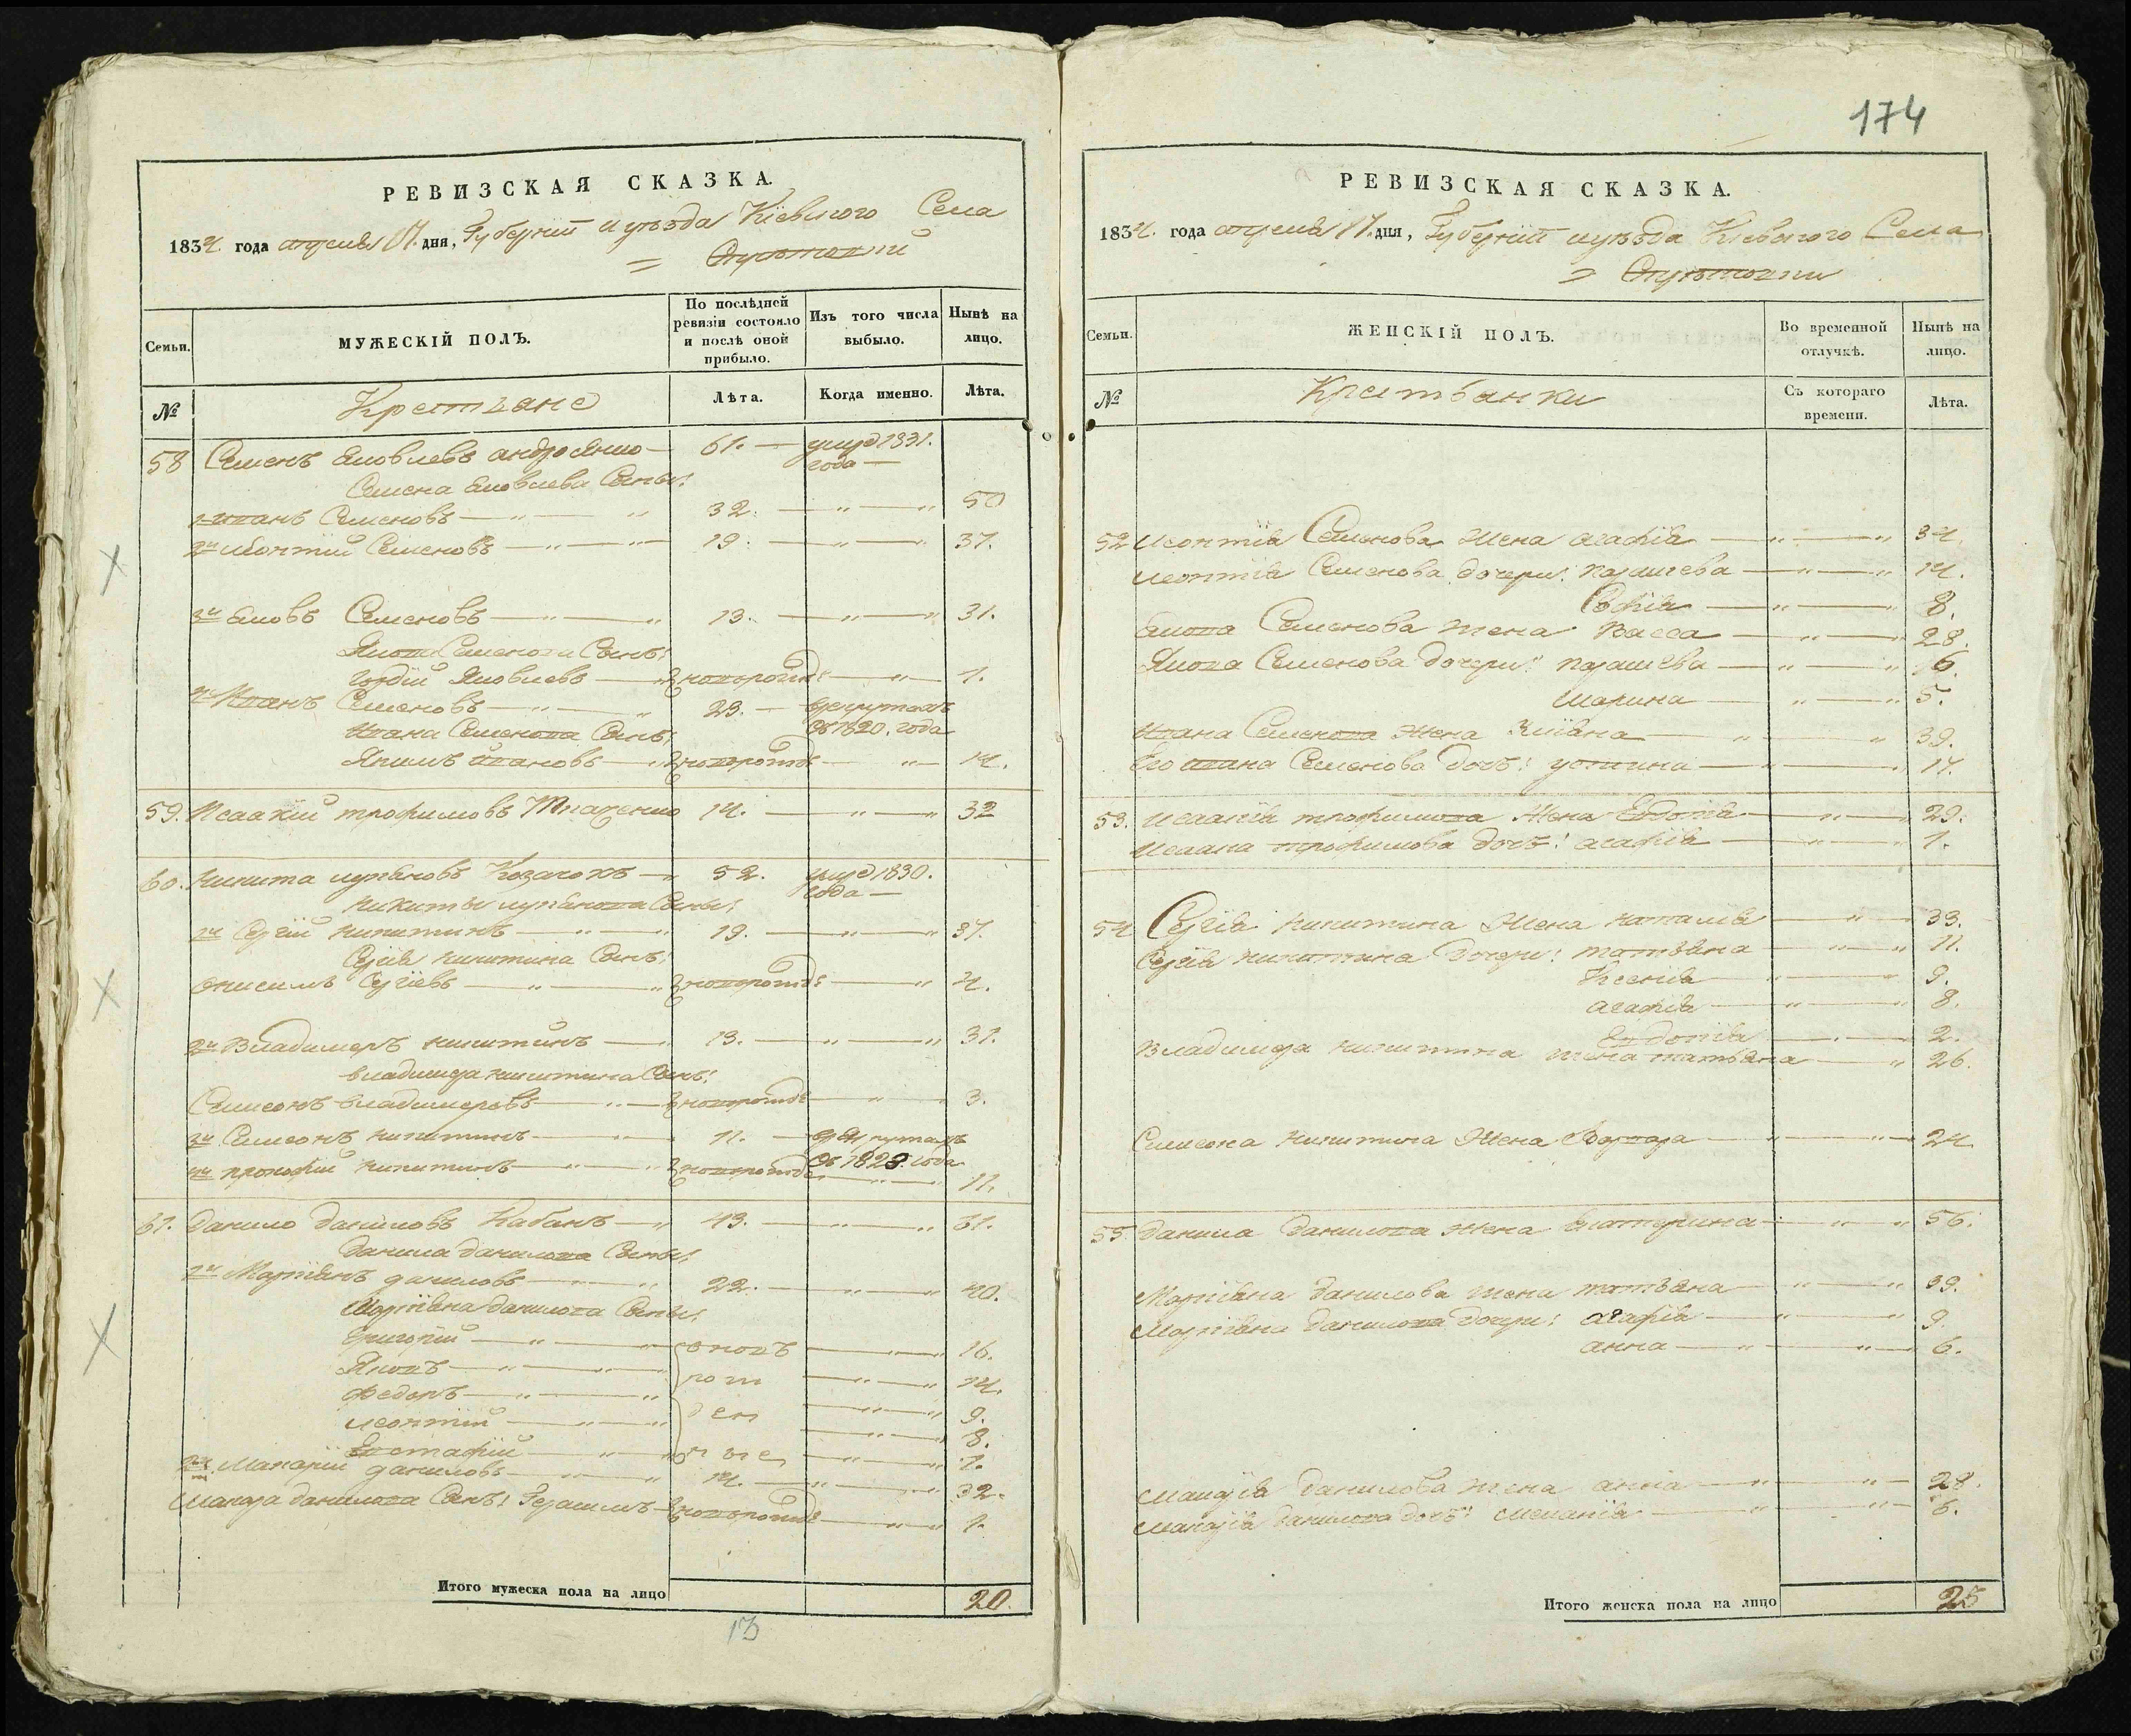 174
РЕВИЗСКАЯ СКАЗКА.
1834. года апреля 17. дня, Губернiи и уѣзда Кiевского Села
=
Семьи.
МУЖЕСКIЙ ПОЛЪ.
По послѣдней ревизiи состояло и послѣ оной прибыло.
Изъ того числа выбыло.
Нынѣ на лицо.
№
Крестьяне
Лѣта.
Когда именно.
Лѣта.
58 Семенъ Яковлевъ 61. — умер 1831. года —
Семена Яковлева Сыны:
1й Иванъ Семеновъ — „ — „ 32. — „ — „ 50
2й Леонтiй Семеновъ — „ — „ 19. — „ — „ 37.
3й Яковъ Семеновъ — „ — „ 13. — „ — „ 31.
Якова Семенова Сынъ:
Гордiй Яковлевъ — „ новорожд: — „ — 1.
4й Иванъ Семеновъ — „ — „ 23. — в рекрутахъ съ 1820. года
Ивана Семенова Сынъ:
Якимъ Ивановъ — „ новорожд: — „ — 14.
59. Исаакiй трофимовъ Ткаченко 14. — „ — „ 32
60. Никита лукьяновъ Козачокъ — „ 52. умер 1830. года —
Никиты лукьянова Сыны:
1й Сергiй Никитинъ — „ — „ 19. — „ — „ 37.
Сергiя Никитина Сынъ:
Онисимъ Сергiевъ — „ — „ новорожд: — „ 4.
2й Владимеръ Никитинъ — „ 13. — „ — „ 31.
Владимера Никитина Сынъ:
Семионъ Владимеровъ — „ — новорожд: — „ — 3.
3й Симеонъ Никитинъ — „ — 11. — в рекрутахъ съ 1828. года
4й прокофiй Никитинъ — „ — новорожд: — „ — 11.
61. Данило Даниловъ Кабанъ — „ 43. — „ — „ 61.
Данила Данилова Сыны:
1й Маркiянъ Даниловъ — „ — „ 22. — „ — „ 40.
Маркiяна Данилова Сыны:
Григорiй — „ — „ вновъ — „ — „ 16.
Яковъ — „ — „ рож — „ — „ 14.
Федоръ — „ — „ ден — „ — „ 9.
Леонтiй — „ — „ — „ — „ 8.
Евстафiй — „ — „ ные — „ — „ 1.
2й Макарiй Даниловъ — „ — „ 14. — „ — „ 32.
Макара Данилова Сынъ: Герасимъ — новорожд: — „ — „ 1.
Итого мужеска пола на лицо 20.
13
РЕВИЗСКАЯ СКАЗКА.
1834. года апреля 17. дня, Губернiи и уѣзда Кiевского Села
=
Семьи.
ЖЕНСКIЙ ПОЛЪ.
Во временной отлучкѣ.
Нынѣ на лицо.
№
Крестьянки
Съ котораго времени.
Лѣта.
52 Леонтiя Семенова Жена агафiя — „ — „ 34.
Леонтiя Семенова дочери: — „ — „ 14.
Софiя — „ — „ 8.
Якова Семенова жена Васса — „ — „ 28.
Якова Семенова дочери: — „ — „ 6.
Марина — „ — „ 5.
Ивана Семенова Жена — „ — „ 39.
Его Ивана Семенова дочь: устина — „ — „ 17.
53. Исаакiя трофимова Жена Евдокiя — „ — „ 29.
Исаака трофимова дочь: агафiя — „ — „ 1.
54 Сергiя Никитина Жена наталiя — „ — „ 33.
Сергiя Никитина дочери: татьяна — „ — „ 11.
Ксенiя — „ — „ 9.
агафiя — „ — „ 8.
Евдокiя — „ — „ 2.
Владимера Никитина жена татьяна — „ 26.
Симиона Никитина Жена Варвара — „ — „ 24
55. Данила Данилова жена Екатерина — „ — „ 56.
Маркiяна Данилова жена татьяна — „ — „ 39.
Маркiяна Данилова дочери: агафiя — „ — „ 9.
анна — „ — „ 6.
Макарiя Данилова жена анна — „ — „ 28.
Макарiя Данилова дочь: Меланiя — „ — „ 6.
Итого женска пола на лицо 25